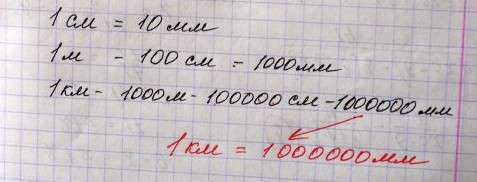 1 см = 10 мм
1 м - 100 см = 1000 мм
1 км - 1000 м - 100000 см - 1000000 мм
1 км = 1000000 мм